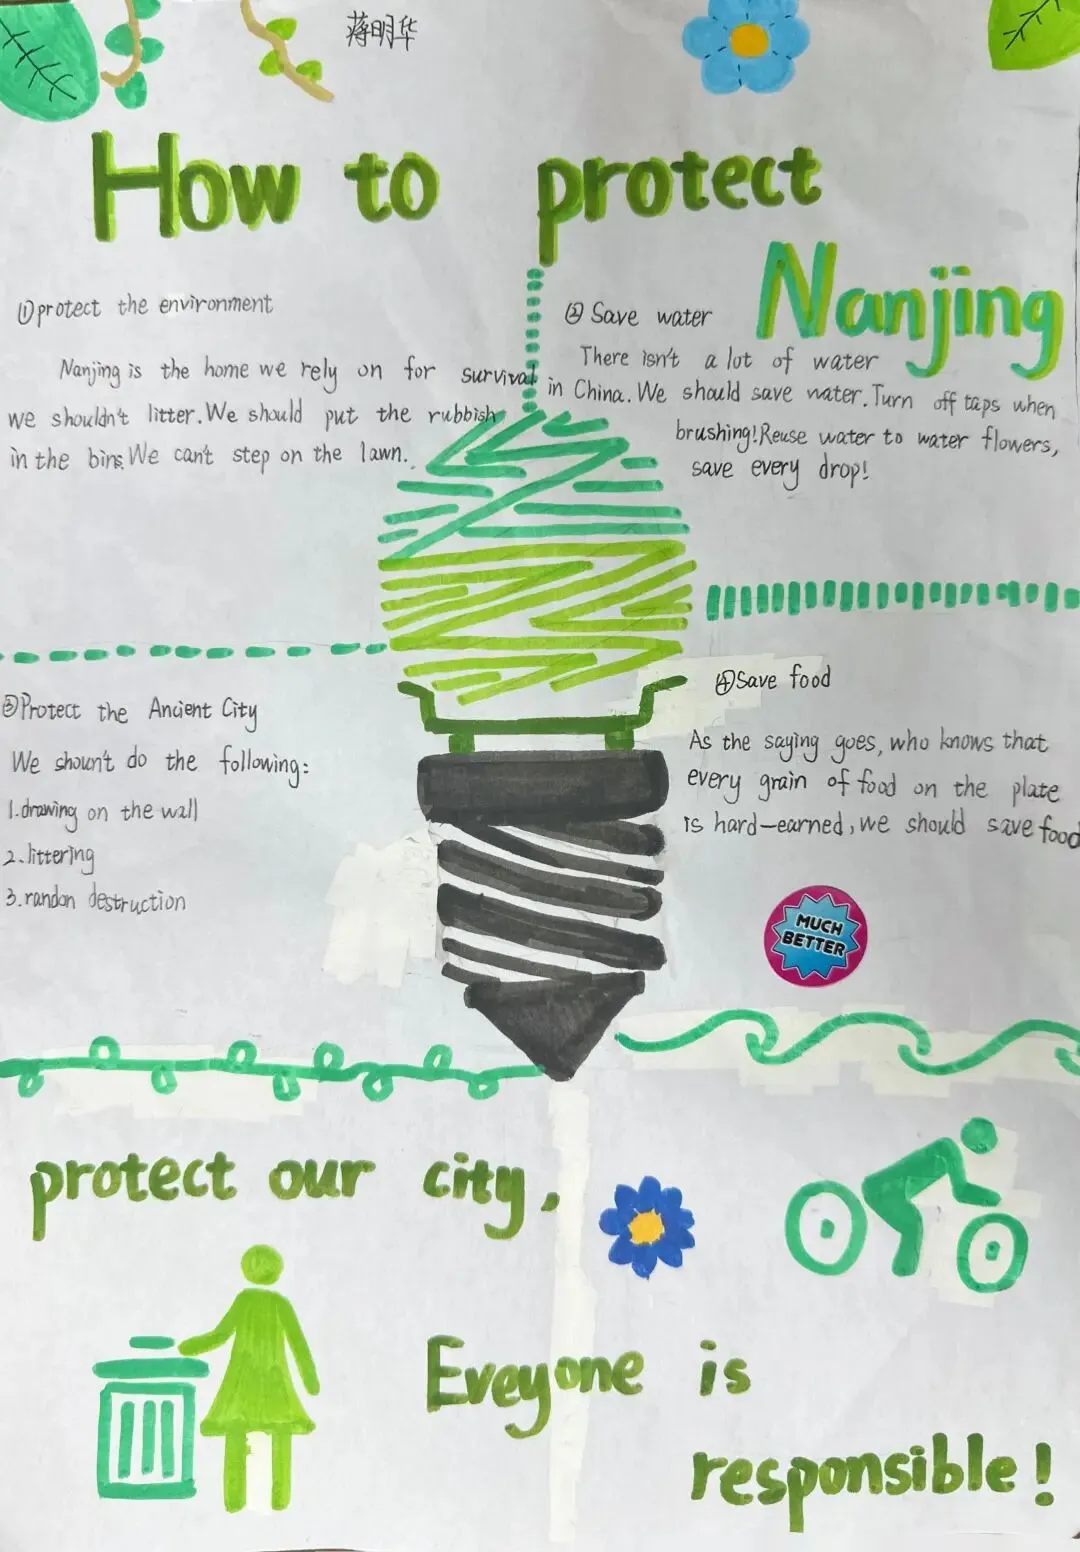 蒋明华
How to protect
Nanjing
①protect the environment
Nanjing is the home we rely on for survival
we shouldn't litter. We should put the rubbish
in the bins. We can't step on the lawn.
② Save water
There isn't a lot of water
in China. We should save water. Turn off taps when
brushing! Reuse water to water flowers,
save every drop!
③Protect the Ancient City
We shoun't do the following:
1. drawing on the wall
2. littering
3. randon destruction
④Save food
As the saying goes, who knows that
every grain of food on the plate
is hard-earned, we should save food
MUCH
BETTER
protect our city.
Eveyone is
responsible!